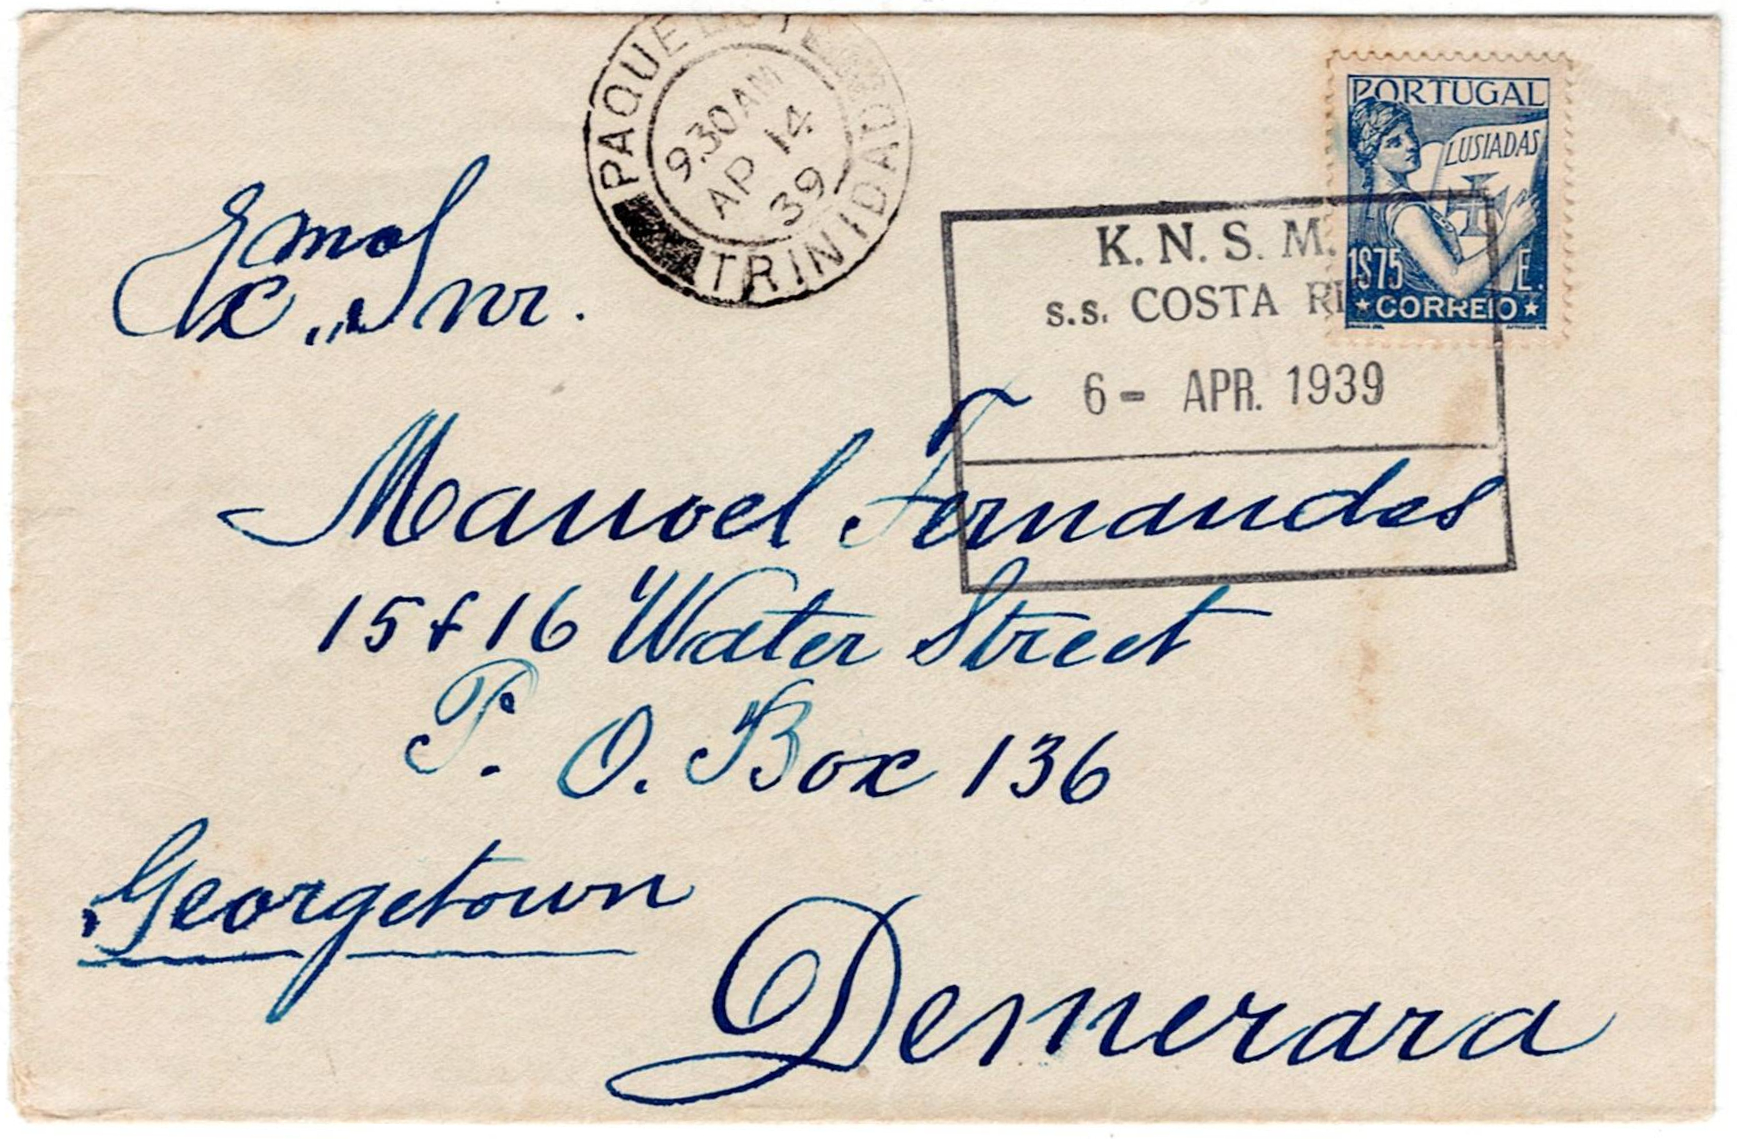 PAQUEBOT TRINIDAD
9.30 AM
AP 14
39
PORTUGAL
LUSIADAS
1$75 E.
★ CORREIO ★
K. N. S. M.
s.s. COSTA RI
6 - APR. 1939
Exmo Snr.
Manoel Fernandes
15 & 16 Water Street
P. O. Box 136
Georgetown
Demerara